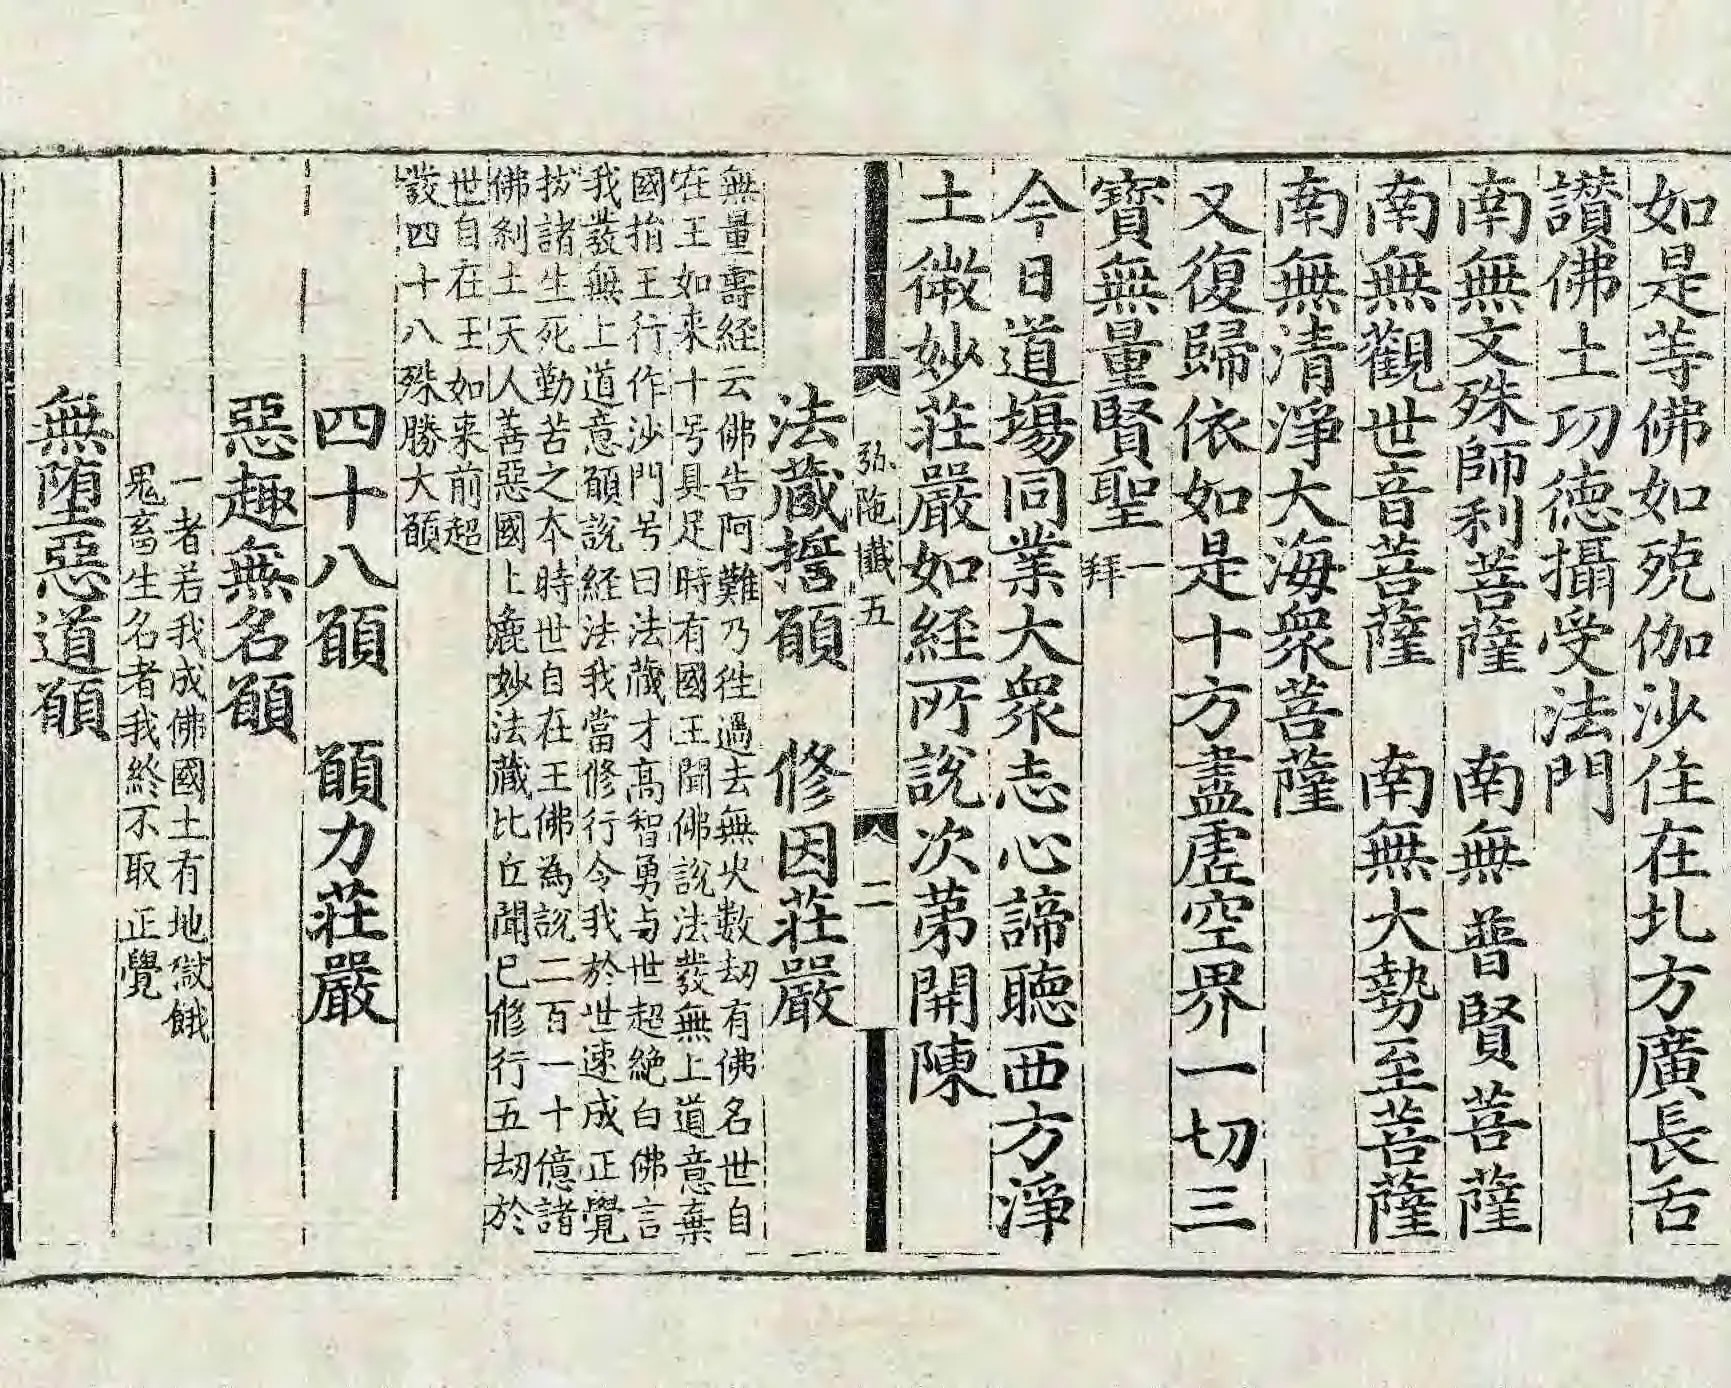 如是等佛如殑伽沙住在北方廣長舌
讃佛土功德攝受法門
南無文殊師利菩薩　南無普賢菩薩
南無觀世音菩薩　南無大勢至菩薩
南無清淨大海衆菩薩
又復歸依如是十方盡虛空界一切三
寶無量賢聖一拜
今日道場同業大衆志心諦聽西方淨
土微妙莊嚴如経所說次第開陳
弥陁懴五　二
法藏誓願　修因莊嚴
無量壽経云佛告阿難乃徃過去無央数劫有佛名世自
在王如来十号具足時有國王聞佛說法發無上道意棄
國捐王行作沙門号曰法藏才高智勇与世超絶白佛言
我發無上道意願說経法我當修行令我於世速成正覺
拔諸生死勤苦之夲時世自在王佛為説二百一十億諸
佛刹土天人善惡國上麁妙法藏比丘聞已修行五劫於
世自在王如来前超
發四十八殊勝大願
四十八願　願力莊嚴
惡趣無名願
一者若我成佛國土有地獄餓
鬼畜生名者我終不取正覺
無堕惡道願